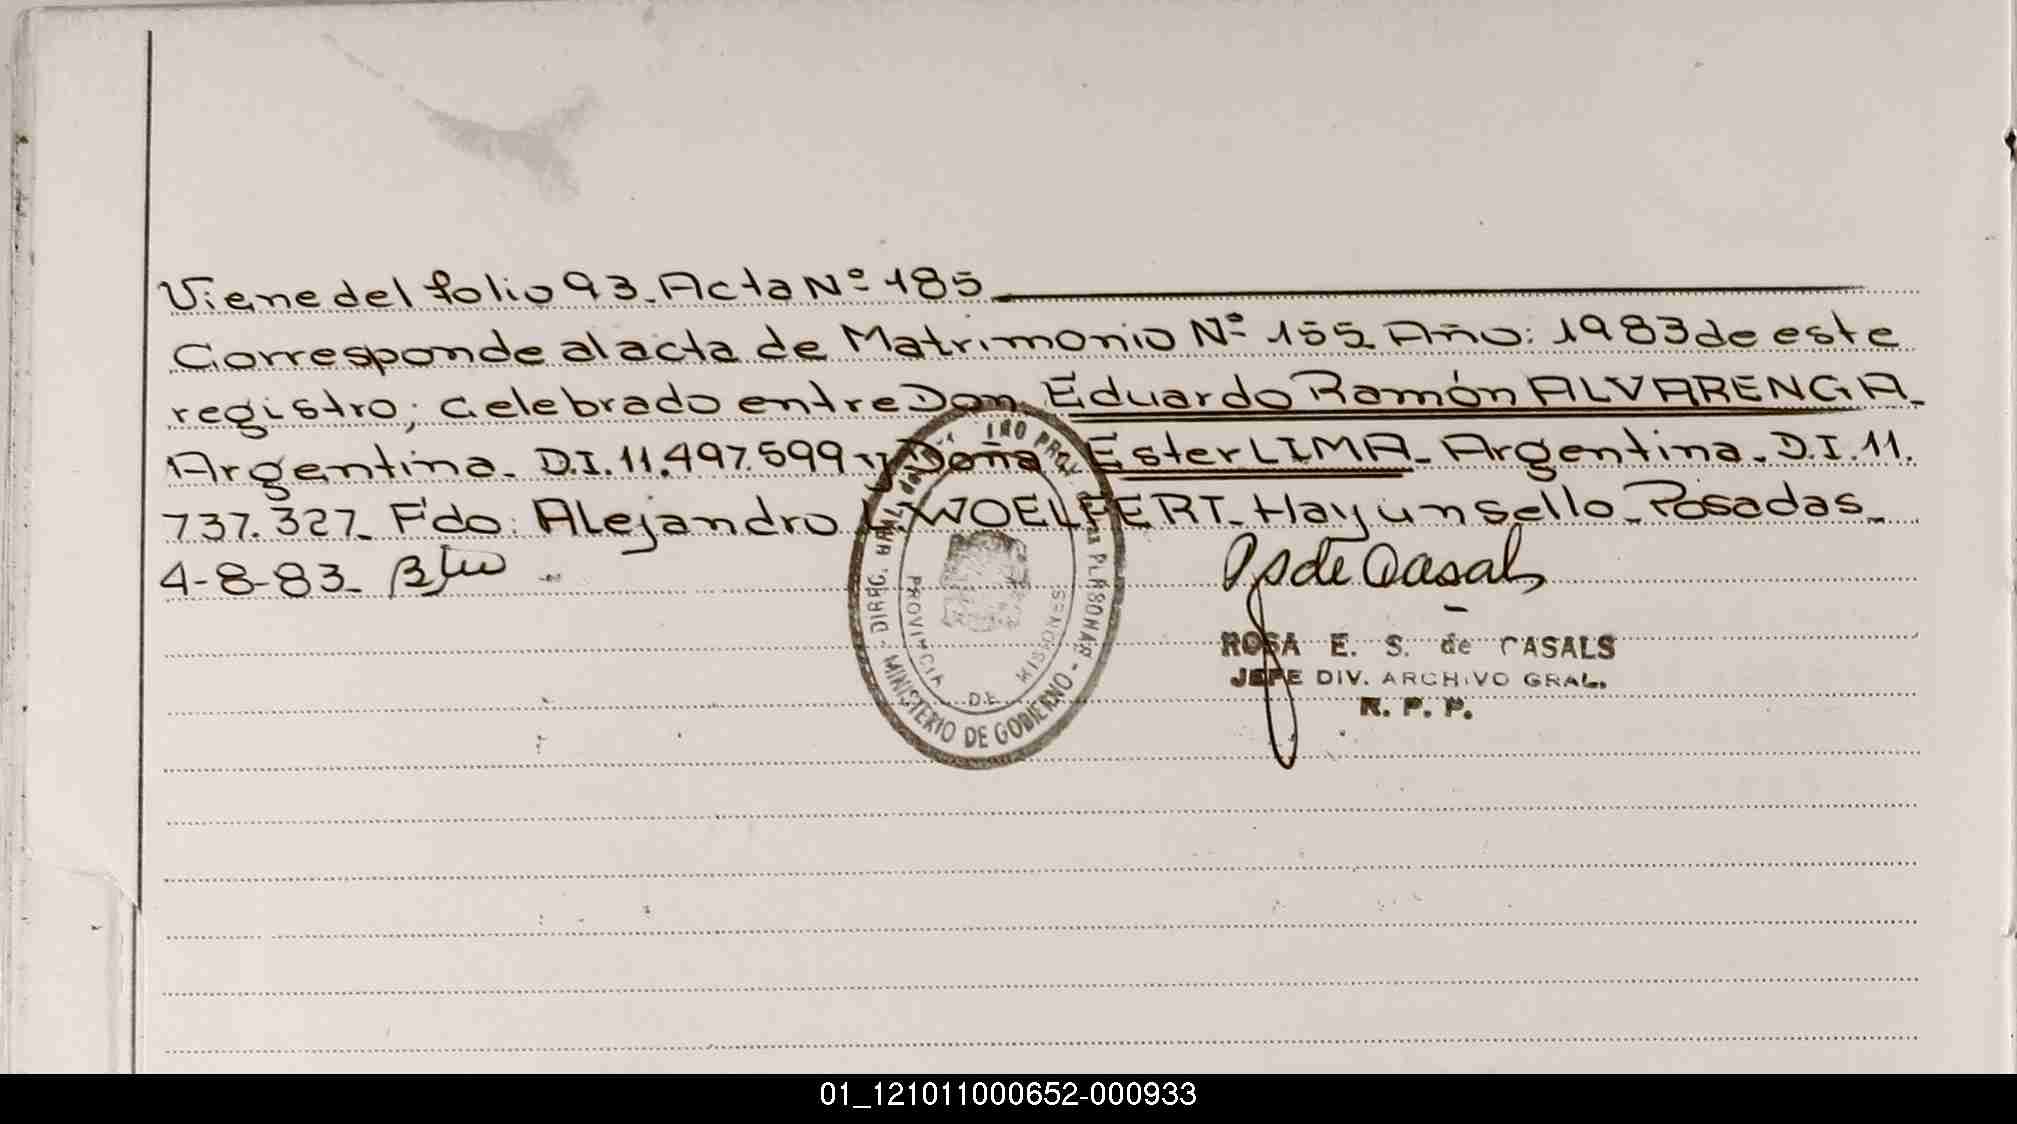 Viene del folio 93. Acta Nº 185
Corresponde al acta de Matrimonio Nº 155. Año: 1983 de este
registro; celebrado entre Don Eduardo Ramón ALVARENGA_
Argentina_ D.I. 11.497.599 y Doña Ester LIMA_ Argentina_ D.I. 11.
737.327_ F'do: Alejandro L. WOELFERT_ Hay un sello_ Posadas_
4-8-83_
MINISTERIO DE GOBIERNO
PROVINCIA DE MISIONES
de Casals
ROSA E. S. de CASALS
JEFE DIV. ARCHIVO GRAL.
R. P. P.
01_121011000652-000933